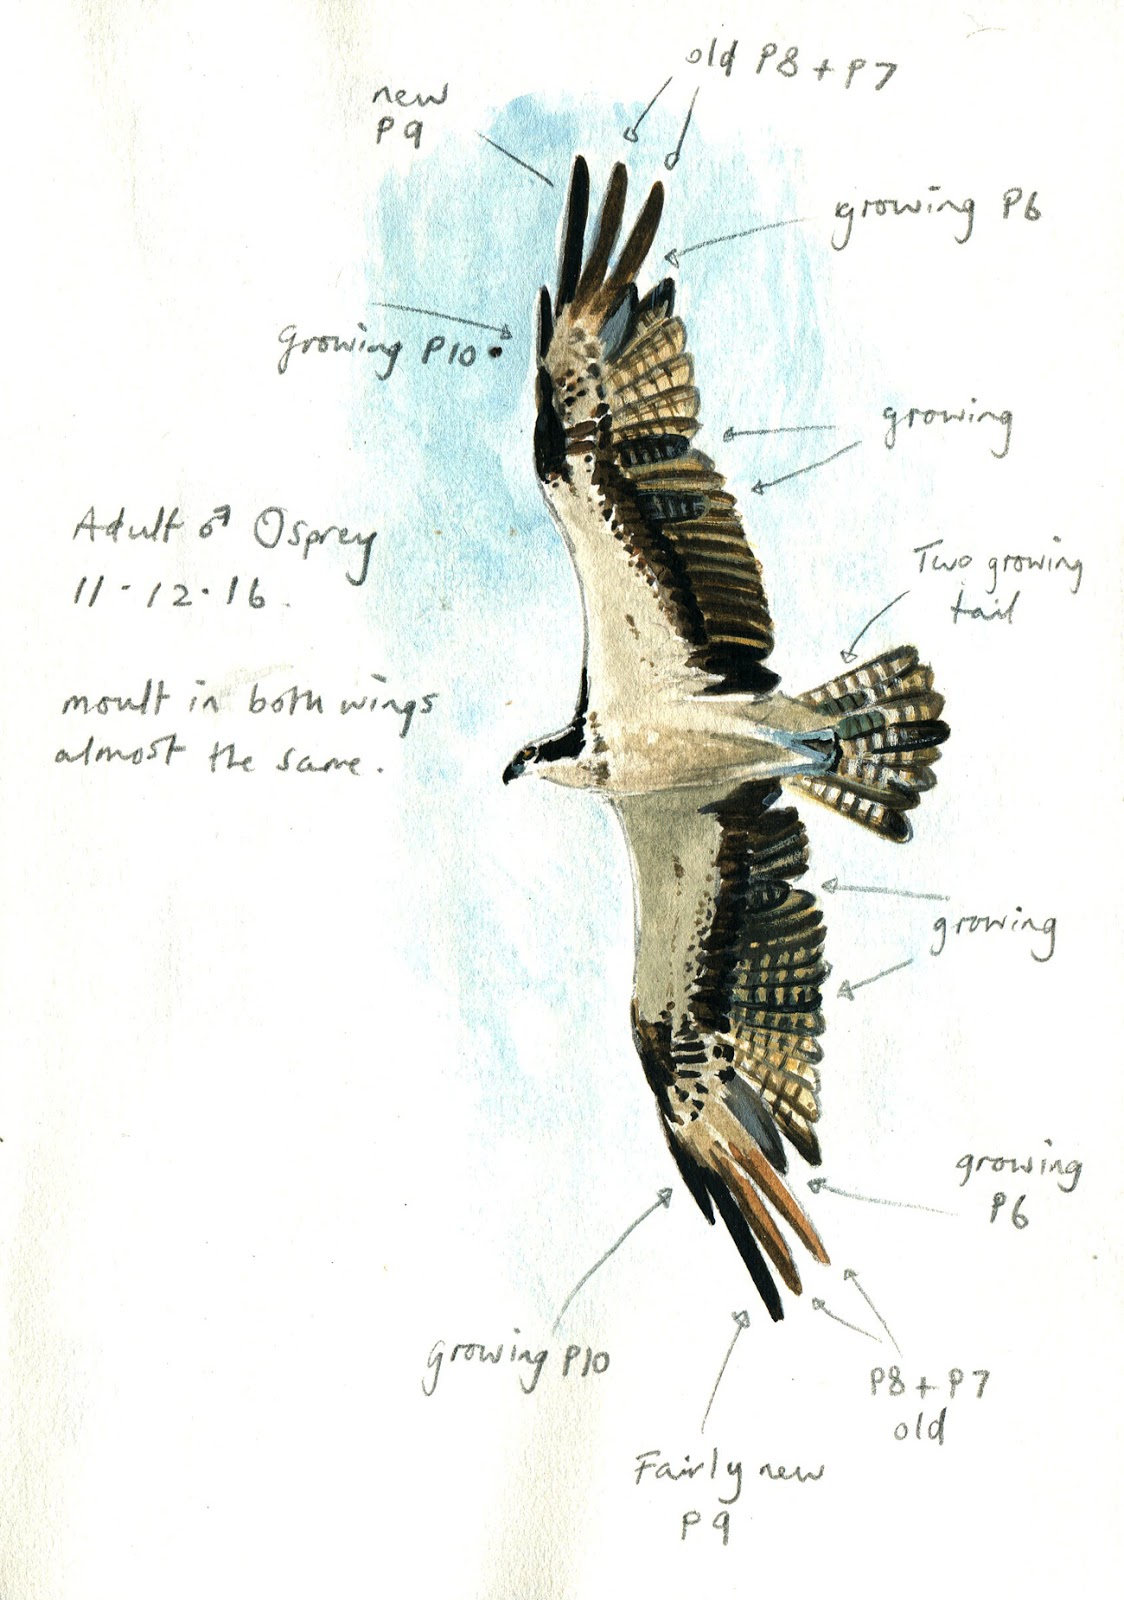 old P8 + P7
new
P9
growing P6
Growing P10
growing
Adult ♂ Osprey
11-12.16.
Two growing
tail
moult in both wings
almost the same.
growing
growing
P6
growing P10
P8 + P7
old
Fairly new
P9